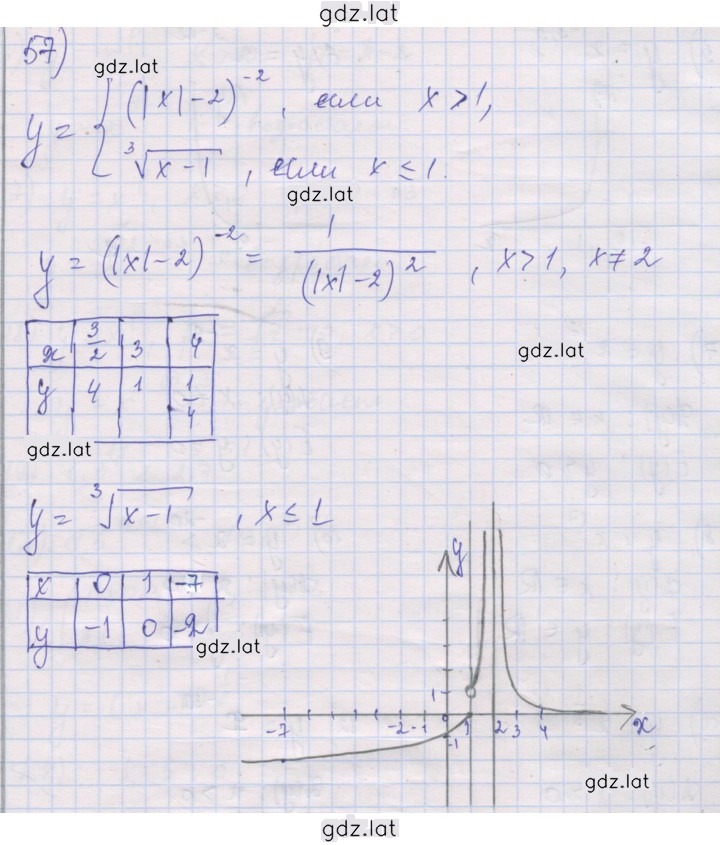 gdz.lat
57)
gdz.lat
y = { (|x|-2)^{-2}, если x > 1,
∛(x-1), если x ≤ 1.
gdz.lat
y = (|x|-2)^{-2} = 1/(|x|-2)^2, x>1, x≠2
x 3/2 3 4
gdz.lat
y 4 1 1/4
gdz.lat
y = ∛(x-1), x ≤ 1
x 0 1 -7
y -1 0 -2
gdz.lat
y
1
-7 -2 -1 1 2 3 4 x
-1
gdz.lat
gdz.lat